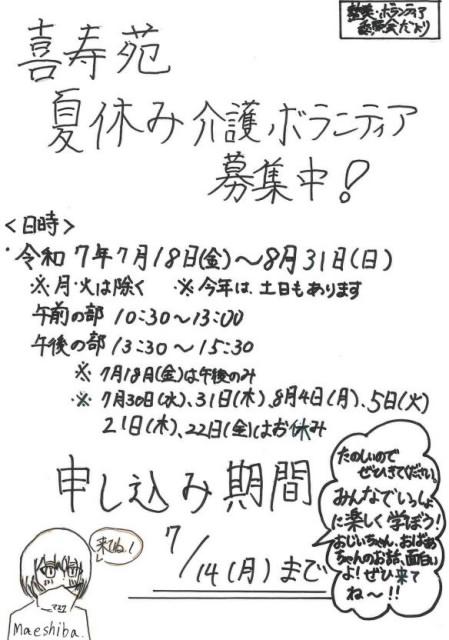 整美・ボランティア
委員会だより
喜寿苑
夏休み介護ボランティア
募集中!
<日時>
・令和7年7月18日(金)～8月31日(日)
※月・火は除く ※今年は、土日もあります
午前の部 10:30～13:00
午後の部 13:30～15:30
※7月18日(金)は午後のみ
※7月30日(水)、31日(木)、8月4日(月)、5日(火)
21日(木)、22日(金)はお休み
申し込み期間
7/14(月)まで
たのしいので
ぜひきてください。
みんなでいっしょ
に楽しく学ぼう!
おじいちゃん、おばあ
ちゃんのお話、面白い
よ!ぜひ来て
ね～!!
来てね!
Maeshiba.